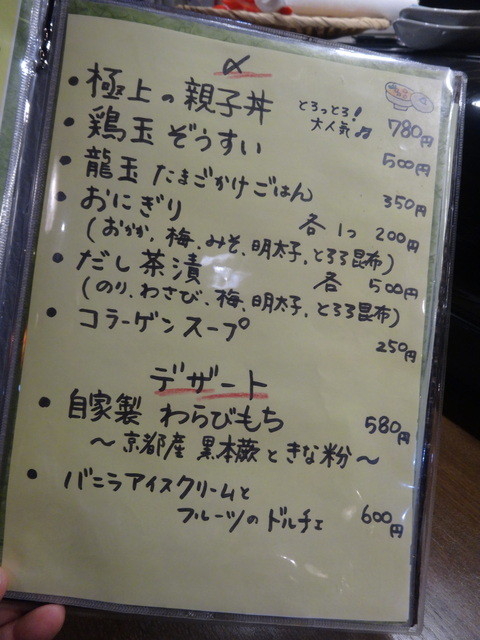 〆
・極上の親子丼 とろっとろ! 大人気♫ 780円
・鶏玉ぞうすい 500円
・龍玉たまごかけごはん 350円
・おにぎり 各1つ 200円
(おかか、梅、みそ、明太子、とろろ昆布)
・だし茶漬 各 500円
(のり、わさび、梅、明太子、とろろ昆布)
・コラーゲンスープ 250円
デザート
・自家製 わらびもち 580円
~京都産 黒本蕨ときな粉~
・バニラアイスクリームと
フルーツのドルチェ 600円